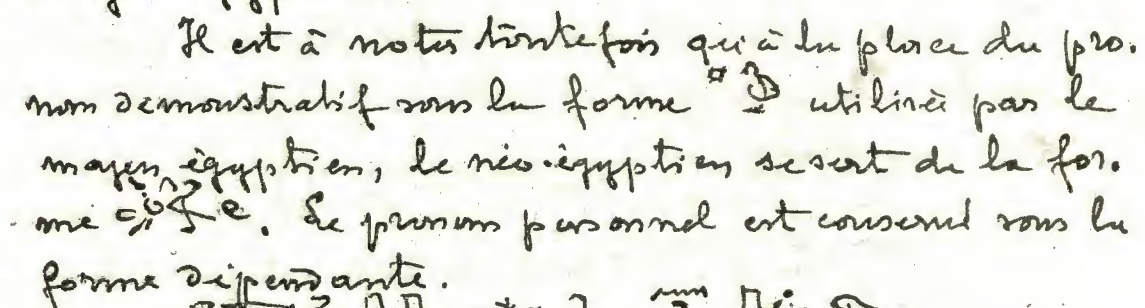 Il est à noter toutefois qu'à la place du pro-
nom démonstratif sous la forme utilisée par le
moyen égyptien, le néo-égyptien se sert de la for-
me . Le pronom personnel est conservé sous la
forme dépendante.